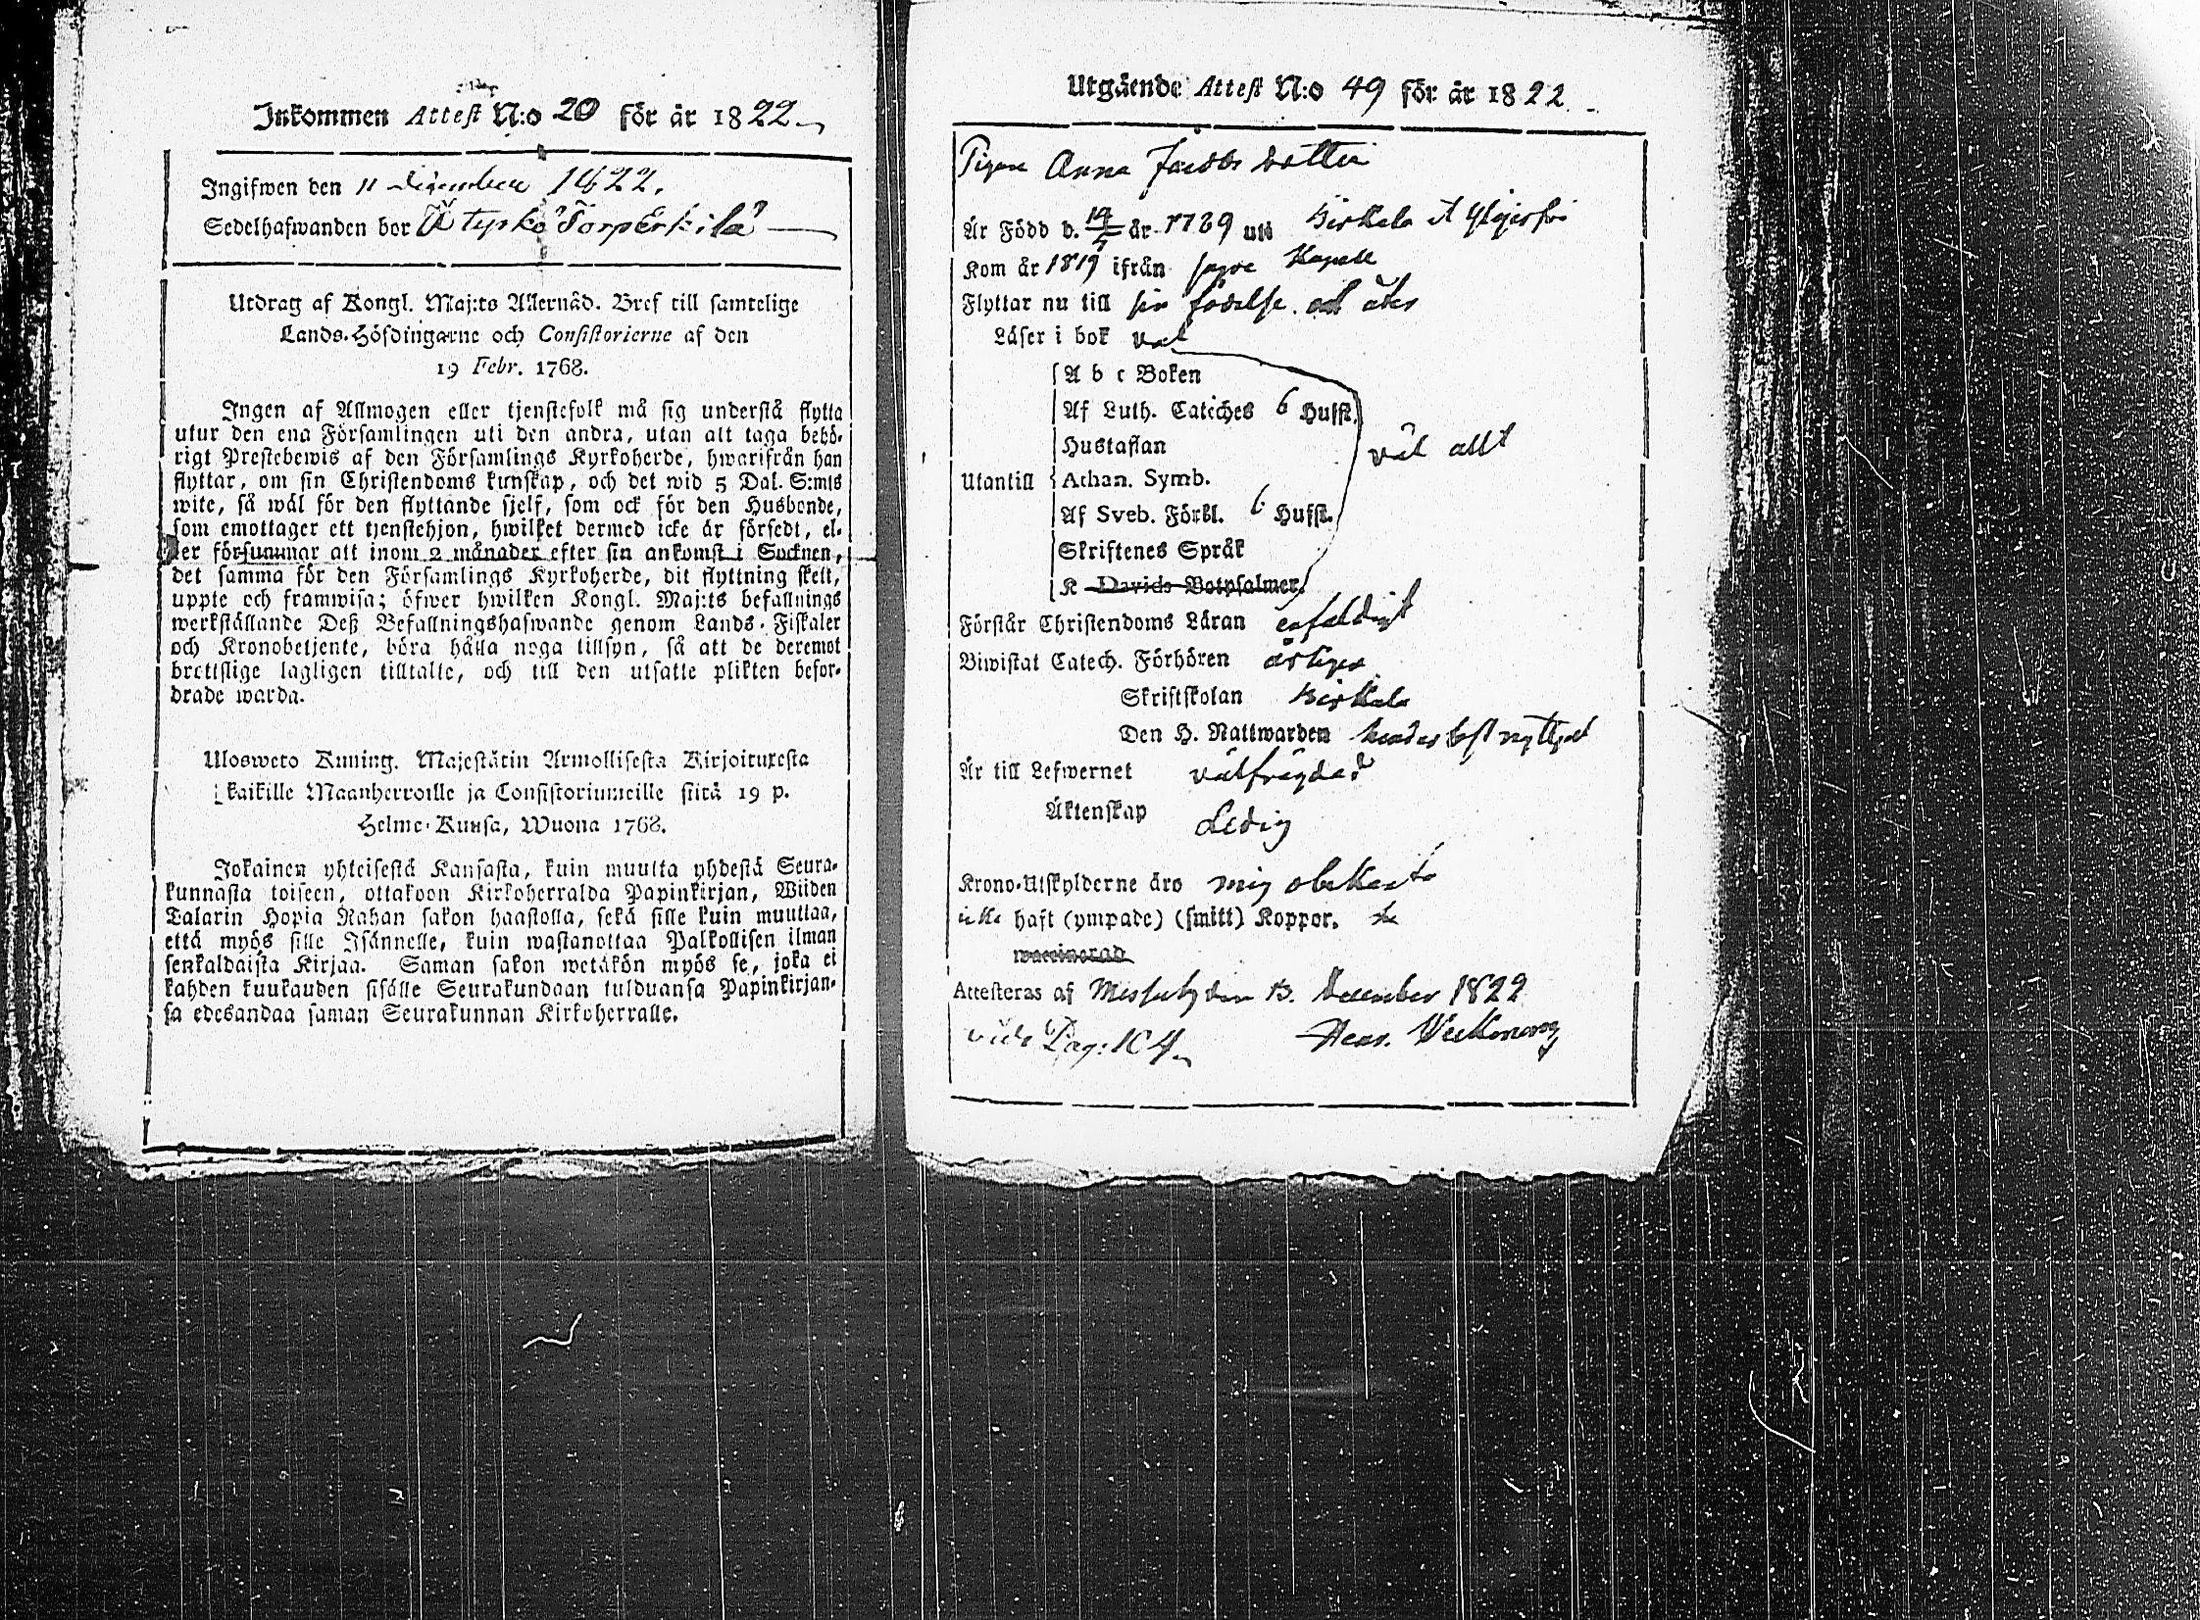 Inkommen Attest N:o 20 för år 1822
Ingifwen den 11 december 1822.
Sedelhafwanden bor
Utdrag af Kongl. Maj:ts Allernåd. Bref till samtelige
Lands-Höfdingarne och Consistorierne af den
19 Febr. 1768.
Ingen af Allmogen eller tjenstefolk må sig understå flytta
utur den ena Församlingen uti den andra, utan att taga behö-
rigt Prestebewis af den Församlings Kyrkoherde, hwarifrån han
flyttar, om sin Christendoms kunskap, och det wid 5 Dal. S:mts
wite, så wäl för den flyttande sjelf, som ock för den Husbonde,
som emottager ett tjenstehjon, hwilket dermed icke är försedt, el-
ler försummar att inom 2 månader efter sin ankomst i Socknen,
det samma för den Församlings Kyrkoherde, dit flyttning skett,
uppte och framwisa; öfwer hwilken Kongl. Maj:ts befallnings
werkställande Deß Befallningshafwande genom Lands-Fiskaler
och Kronobetjente, böra hålla noga tillsyn, så att de deremot
brottslige lagligen tilltalte, och till den utsatte plikten befor-
drade warda.
Ulosweto Kuning. Majestätin Armollisesta Kirjoituxesta
kaikille Maanherroille ja Consistoriumeille siitä 19 p.
Helme-Kuusa, Wuona 1768.
Jokainen yhteisestä Kansasta, kuin muutta yhdestä Seura-
kunnasta toiseen, ottakoon Kirkoherralda Papinkirjan, Wiiden
Talarin Hopia Rahan sakon haastolla, sekä sille kuin muuttaa,
että myös sille Isännelle, kuin wastanottaa Palkollisen ilman
senkaldaista Kirjaa. Saman sakon wetäkön myös se, joka ei
kahden kuukauden sisälle Seurakundaan tulduansa Papinkirjan-
sa edesandaa saman Seurakunnan Kirkoherralle.
Utgående Attest N:o 49 för år 1822
Pigan Anna Jacobs dotter
Är Född d. 14/7 år 1789 uti Birkala
Kom år 1819 ifrån samma Kapell
Flyttar nu till sin födelse ort åter
Läser i bok väl
A b c Boken
Af Luth. Catiches 6 Hufst.
Hustaflan
väl allt
Utantill Athan. Symb.
Af Sveb. Förkl. 6 Hufst.
Skriftenes Språk
K Davids Botpsalmer.
Förstår Christendoms Läran enfaldigt
Biwistat Catech. Förhören årligen
Skriftskolan Birkala
Den H. Nattwarden nyttjat
Är till Lefwernet välfrägdad
Äktenskap Ledig
Krono-Utskylderne äro mig obekanta
icke haft (ympade) (smitt) Koppor.
waccinerad
Attesteras af Messuby den 13. December 1822
vide Pag: 104